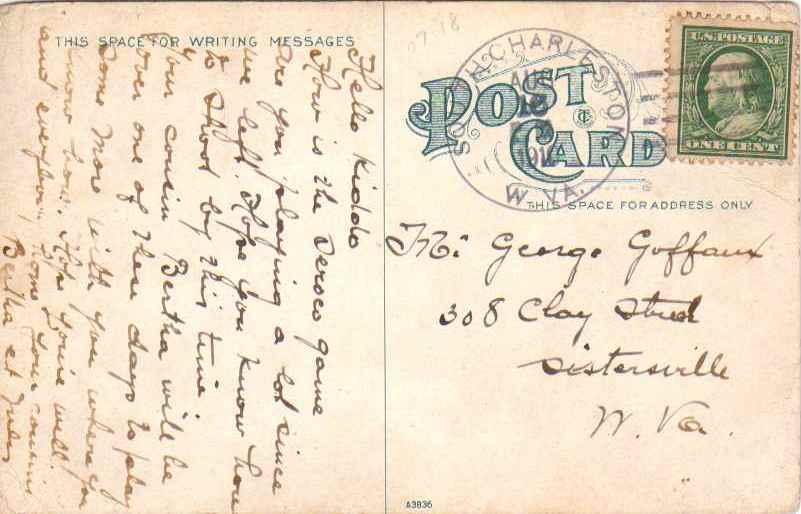 THIS SPACE FOR WRITING MESSAGES
Hello Kiddo
How is the Seroco game
Are you playing a lot since
we left. Hope you know how
to shoot by this time.
Your cousin Bertha will be
over one of these days to play
some more with you where you
know how. Hope you're well
and everybody home Your cousins
Bertha et Jules
07-18
SOUTH CHARLESTON
AUG
W. VA.
POST
CARD
U.S. POSTAGE
ONE CENT
THIS SPACE FOR ADDRESS ONLY
Mr George Goffaux
308 Clay Street
Sistersville
W. Va.
A3836